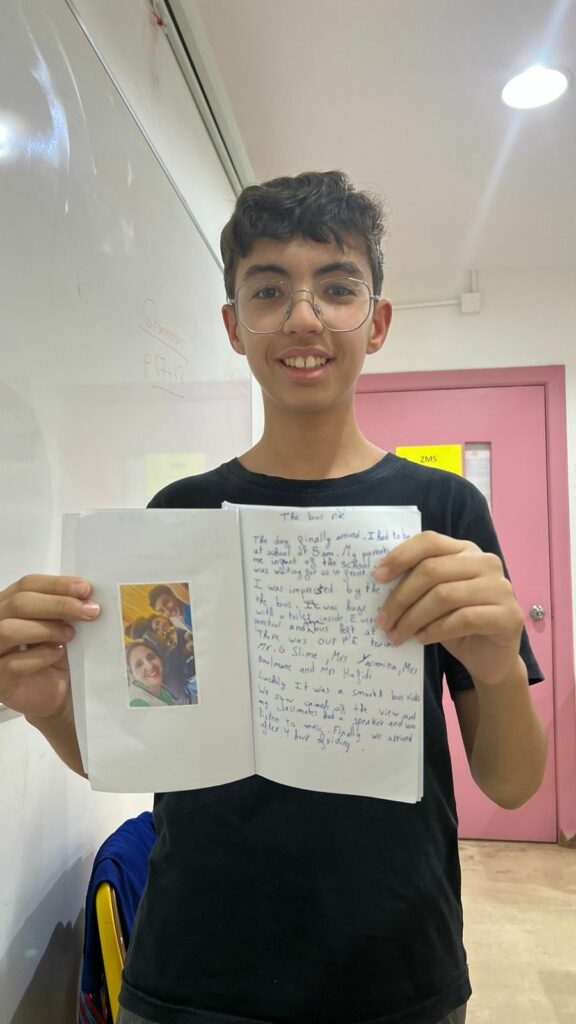 Grammar
P27+29
ZMS
The bus rid
The day finally arrived. I had to be
at school at 5am. My parents
me in front of the school.
was waiting for us in front
I was impressed by the
the bus. It was hugs
with a toilet inside. Every
punctual and bus left at
There was our P.E teac
Mr. G Slime, Mrs Yasmina, Mrs
Boulmane and Mrs Hafidi
Luckily It was a smooth bus ride
We saw camels of the view and
my classmates had a speaker and we
listen to music. Finally we arrived
after 4 hour of riding.